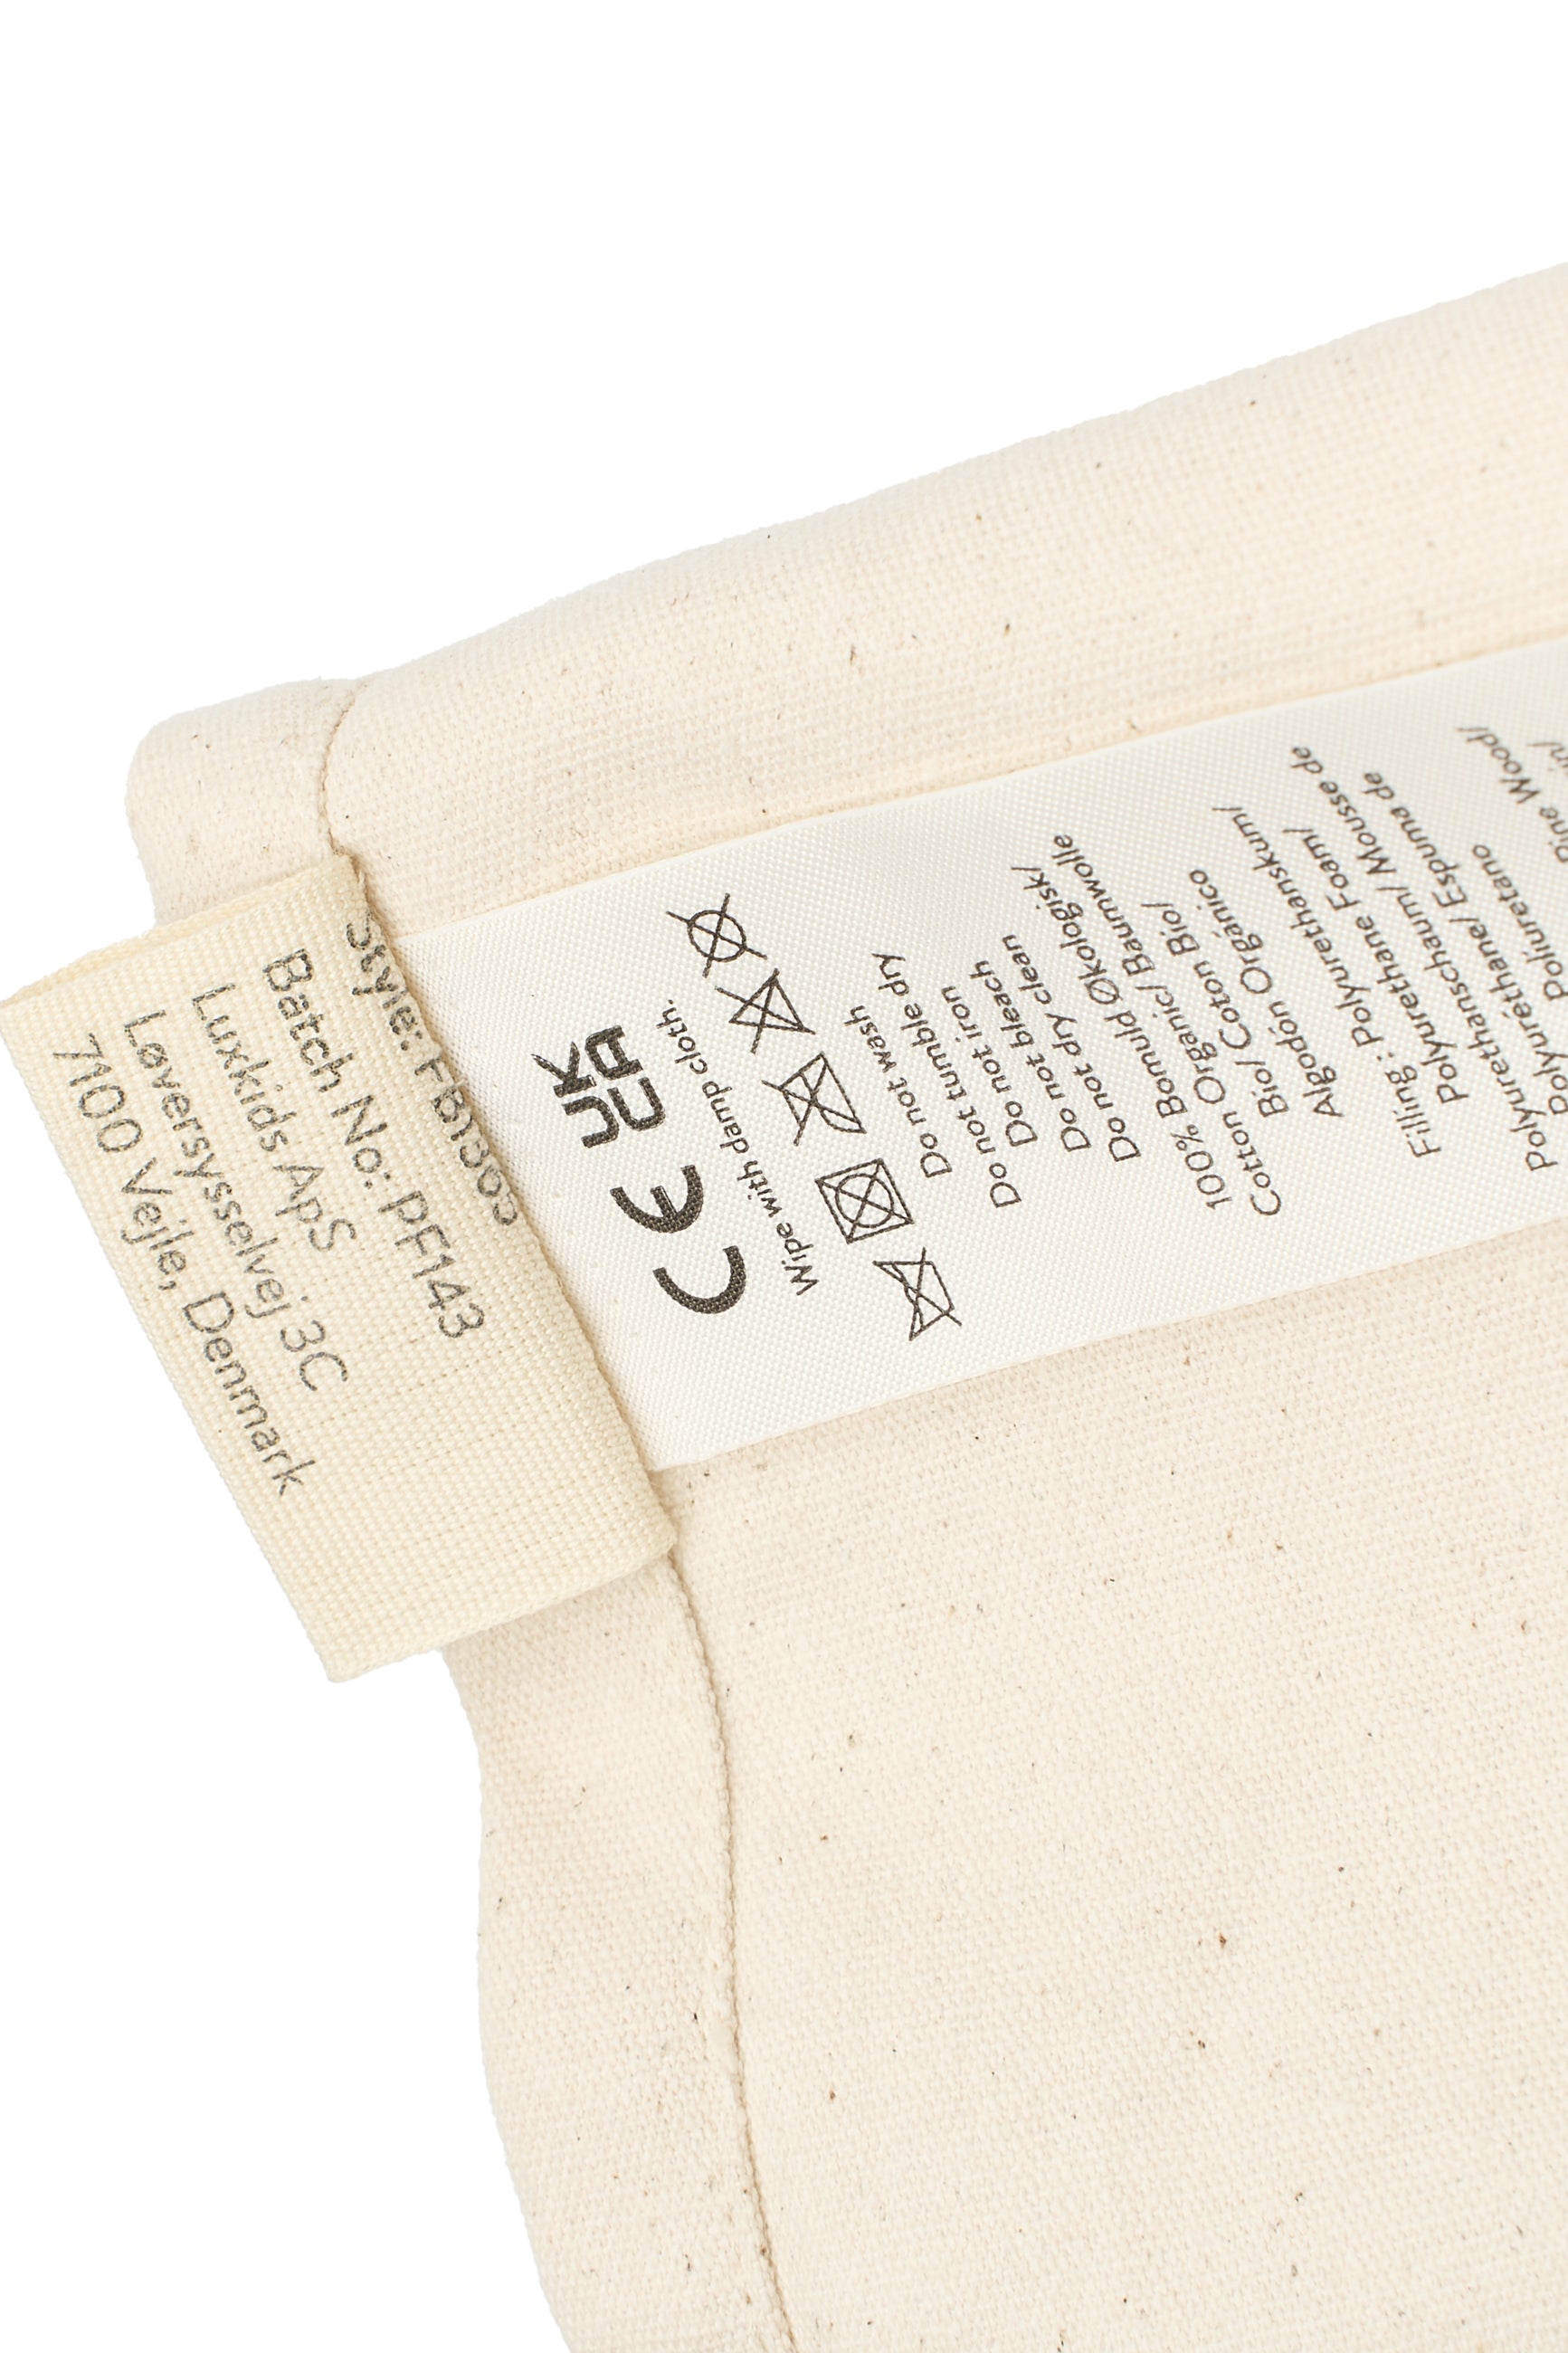 Style:
Batch No: PF143
Luxkids ApS
Løversysselvej 3C
7100 Vejle, Denmark
CE UK CA
Wipe with damp cloth.
Do not wash
Do not tumble dry
Do not iron
Do not bleach
Do not dry clean
100% Bomuld Økologisk/
Cotton Organic/ Baumwolle
Bio/ Coton Bio/
Algodón Orgánico
Filling: Polyurethanskum/
Polyurethane Foam/
Polyurethanschaum/ Mousse de
Polyuréthane/ Espuma de
Poliuretano
Wood/